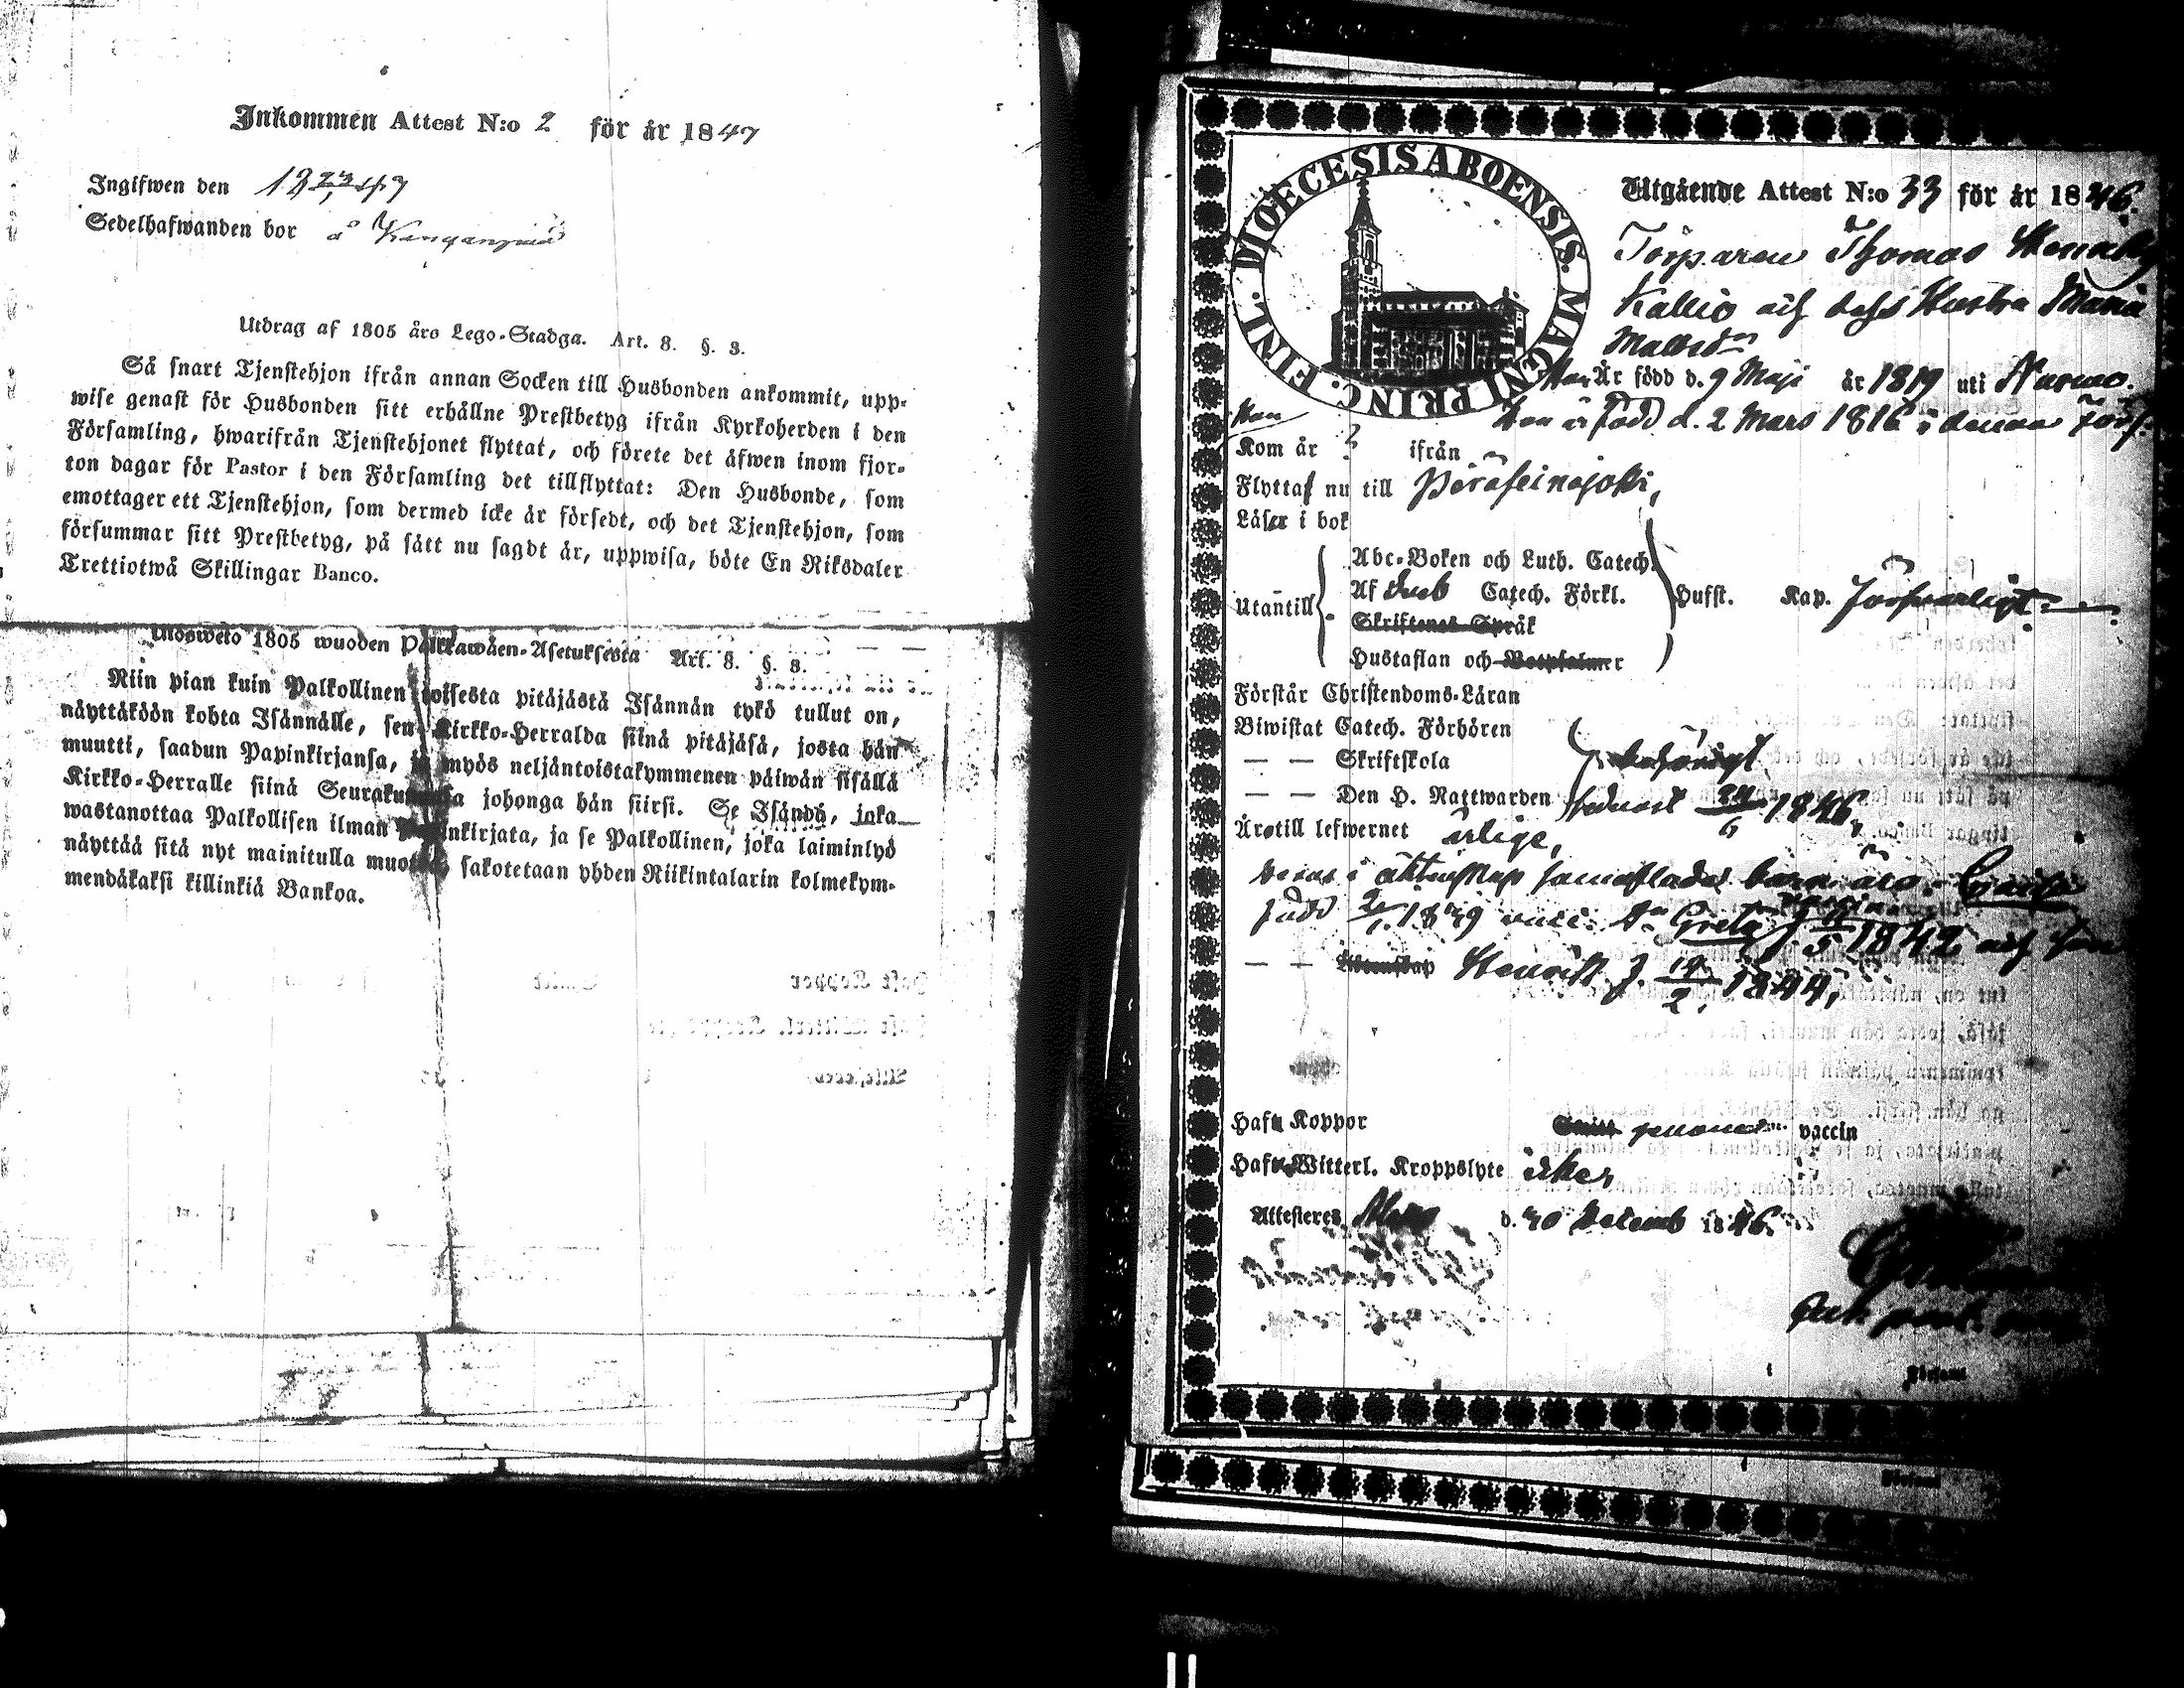 Inkommen Attest N:o 2 för år 1847
Ingifwen den 18 23/1 47
Sedelhafwanden bor å
Utdrag af 1805 års Lego-Stadga. Art. 8. §. 3.
Så snart Tjenstehjon ifrån annan Socken till Husbonden ankommit, upp-
wise genast för Husbonden sitt erhållne Prestbetyg ifrån Kyrkoherden i den
Församling, hwarifrån Tjenstehjonet flyttat, och förete det äfwen inom fjor-
ton dagar för Pastor i den Församling det tillflyttat: Den Husbonde, som
emottager ett Tjenstehjon, som dermed icke är försedt, och det Tjenstehjon, som
försummar sitt Prestbetyg, på sätt nu sagdt är, uppwisa, böte En Riksdaler
Trettiotwå Skillingar Banco.
Ulosweto 1805 wuoden Palkkawäen-Asetuksesta Art. 8. §. 8.
Niin pian kuin Palkollinen toisesta pitäjästä Isännän tykö tullut on,
näyttäköön kohta Isännälle, sen Kirkko-Herralda siinä pitäjäsä, josta hän
muutti, saadun Papinkirjansa, ja myös neljäntoistakymmenen päiwän sisällä
Kirkko-Herralle siinä Seurakunnasa johonga hän siirsi. Se Isändä, joka
wastanottaa Palkollisen ilman Papinkirjata, ja se Palkollinen, joka laiminlyö
näyttää sitä nyt mainitulla muotoa, sakotetaan yhden Riikintalarin kolmekym-
mendäkaksi killinkiä Bankoa.
DIOECESIS ABOENSIS. MAGNI PRINC. FINL.
Utgående Attest N:o 33 för år 1846.
Torparen Thomas
Kallio och dess Hustru Maria
Mattsdr
Han Är född d. 9 Maji år 1819 uti Nurmo.
Hon är född d. 2 Mars 1816 i denna förs.
Kom år ifrån
Flyttat nu till Peräseinäjoki,
Läser i bok
Utantill Abc-Boken och Luth. Catech.
Af Catech. Förkl. Hufst. Kap. Försvarligt
Skriftenes Språk
Hustaflan och Botpsalmer
Förstår Christendoms-Läran
Biwistat Catech. Förhören
— — Skriftskola
— — Den H. Nattwarden 24/6 1846,
Ärstill lefwernet ärlige,
deras i äktenskap sammaflade barn äro:
född 2/1 1839 Greta f 11/5 1842 och
— — Äktenskap Henrik f. 19/2 1844,
Haft Koppor vaccin
Haft Witterl. Kroppslyte icke,
Attesteres d. 30 Decemb 1846.
Församl